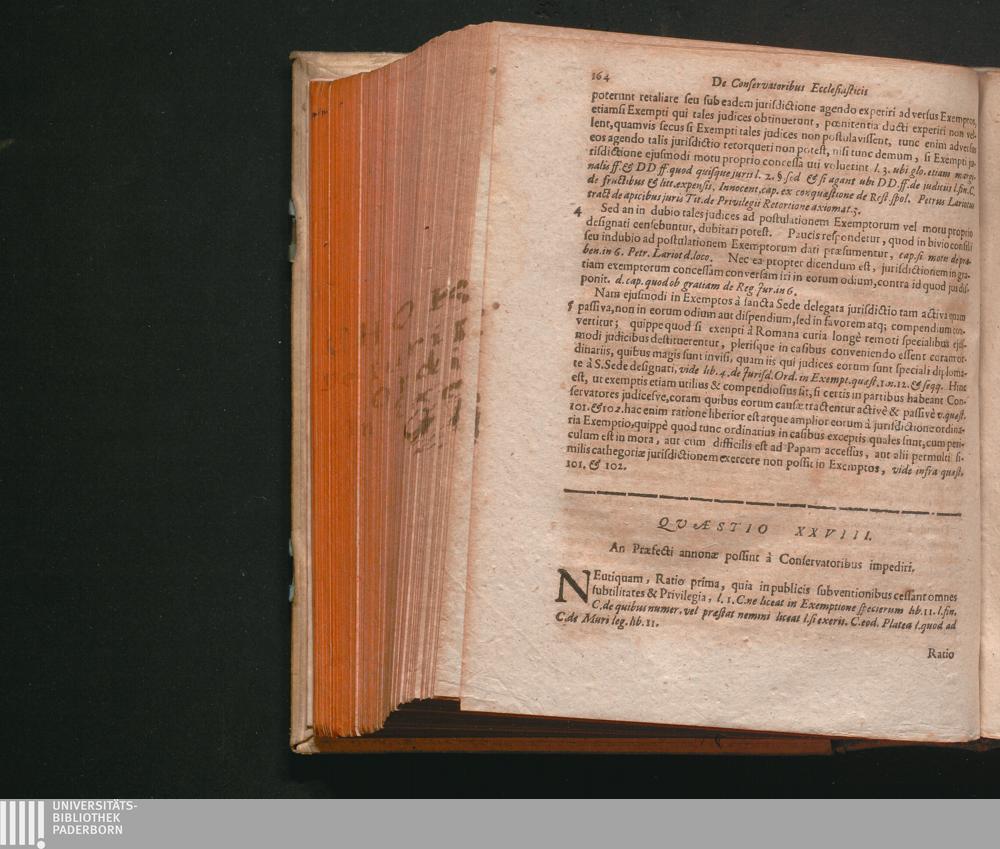 164
De Conservatoribus Ecclesiasticis
poterunt retaliare seu sub eadem jurisdictione agendo experiri adversus Exemptos,
etiamsi Exempti qui tales judices obtinuerunt, pœnitentia ducti experiri non vel-
lent, quamvis secus si Exempti tales judices non postulavissent, tunc enim adversus
eos agendo talis jurisdictio retorqueri non potest, nisi tunc demum, si Exempti ju-
risdictione ejusmodi motu proprio concessa uti voluerint l. 3. ubi glo. etiam margi-
nalis ff. & DD ff. quod quisque juris l. 2. §. sed & si agant ubi DD. ff. de judiciis l. fin. C.
de fructibus & litt. expensis, Innocent. cap. ex conquæstione de Rest. spol. Petrus Lariotus
tract de apicibus juris Tit. de Privilegii Retortione axiomat. 3.
4 Sed an in dubio tales judices ad postulationem Exemptorum vel motu proprio
designati censebuntur, dubitari potest. Paucis respondetur, quod in bivio consilii
seu in dubio ad postulationem Exemptorum dati præsumentur, cap. si motu de præ-
ben. in 6. Petr. Lariot d. loco. Nec ea propter dicendum est, jurisdictionem in gra-
tiam exemptorum concessam conversam iri in eorum odium, contra id quod jus dis-
ponit. d. cap. quod ob gratiam de Reg Jur. in 6.
Nam ejusmodi in Exemptos à sancta Sede delegata jurisdictio tam activa quam
5 passiva, non in eorum odium aut dispendium, sed in favorem atq; compendium con-
vertitur; quippe quod si exempti à Romana curia longè remoti specialibus ejus-
modi judicibus destituerentur, plerisque in casibus conveniendo essent coram or-
dinariis, quibus magis sunt invisi, quam iis qui judices eorum sunt speciali diploma-
te à S. Sede designati, vide lib. 4. de Jurisd. Ord. in Exempt. quæst. 1. n. 12. & seqq. Hinc
est, ut exemptis etiam utilius & compendiosius sit, si certis in partibus habeant Con-
servatores judicesve, coram quibus eorum causæ tractentur activè & passivè v. quæst.
101. & 102. hac enim ratione liberior est atque amplior eorum à jurisdictione ordina-
ria Exemptio, quippè quod tunc ordinarius in casibus exceptis quales sunt, cum peri-
culum est in mora, aut cum difficilis est ad Papam accessus, aut alii permulti si-
milis cathegoriæ jurisdictionem exercere non possit in Exemptos, vide infra quæst.
101. & 102.
QUÆSTIO XXVIII.
An Præfecti annonæ possint à Conservatoribus impediri.
NEutiquam, Ratio prima, quia in publicis subventionibus cessant omnes
subtilitates & Privilegia, l. 1. C. ne liceat in Exemptione specierum lib. 11. l. fin.
C. de quibus numer. vel præstat nemini liceat l. si exeris. C. eod. Platea l. quod ad
C. de Muri leg. lib. 11.
Ratio
UNIVERSITÄTS-
BIBLIOTHEK
PADERBORN